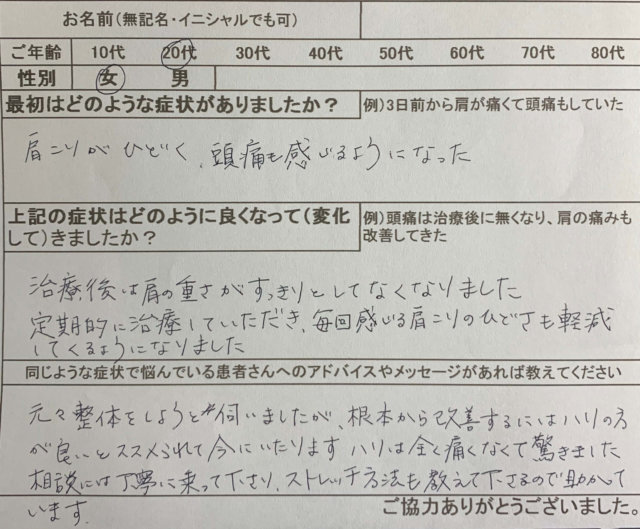 お名前（無記名・イニシャルでも可）
ご年齢 10代 20代 30代 40代 50代 60代 70代 80代
性別 女 男
最初はどのような症状がありましたか？ 例）3日前から肩が痛くて頭痛もしていた
肩こりがひどく、頭痛も感じるようになった
上記の症状はどのように良くなって（変化して）きましたか？ 例）頭痛は治療後に無くなり、肩の痛みも改善してきた
治療後は肩の重さがすっきりとしてなくなりました
定期的に治療していただき、毎回感じる肩こりのひどさも軽減
してくるようになりました
同じような症状で悩んでいる患者さんへのアドバイスやメッセージがあれば教えてください
元々整体をしようと伺いましたが、根本から改善するにはハリの方
が良いとススメられて今にいたります ハリは全く痛くなくて驚きました
相談には丁寧に乗って下さり、ストレッチ方法も教えて下さるので助かって
います。
ご協力ありがとうございました。